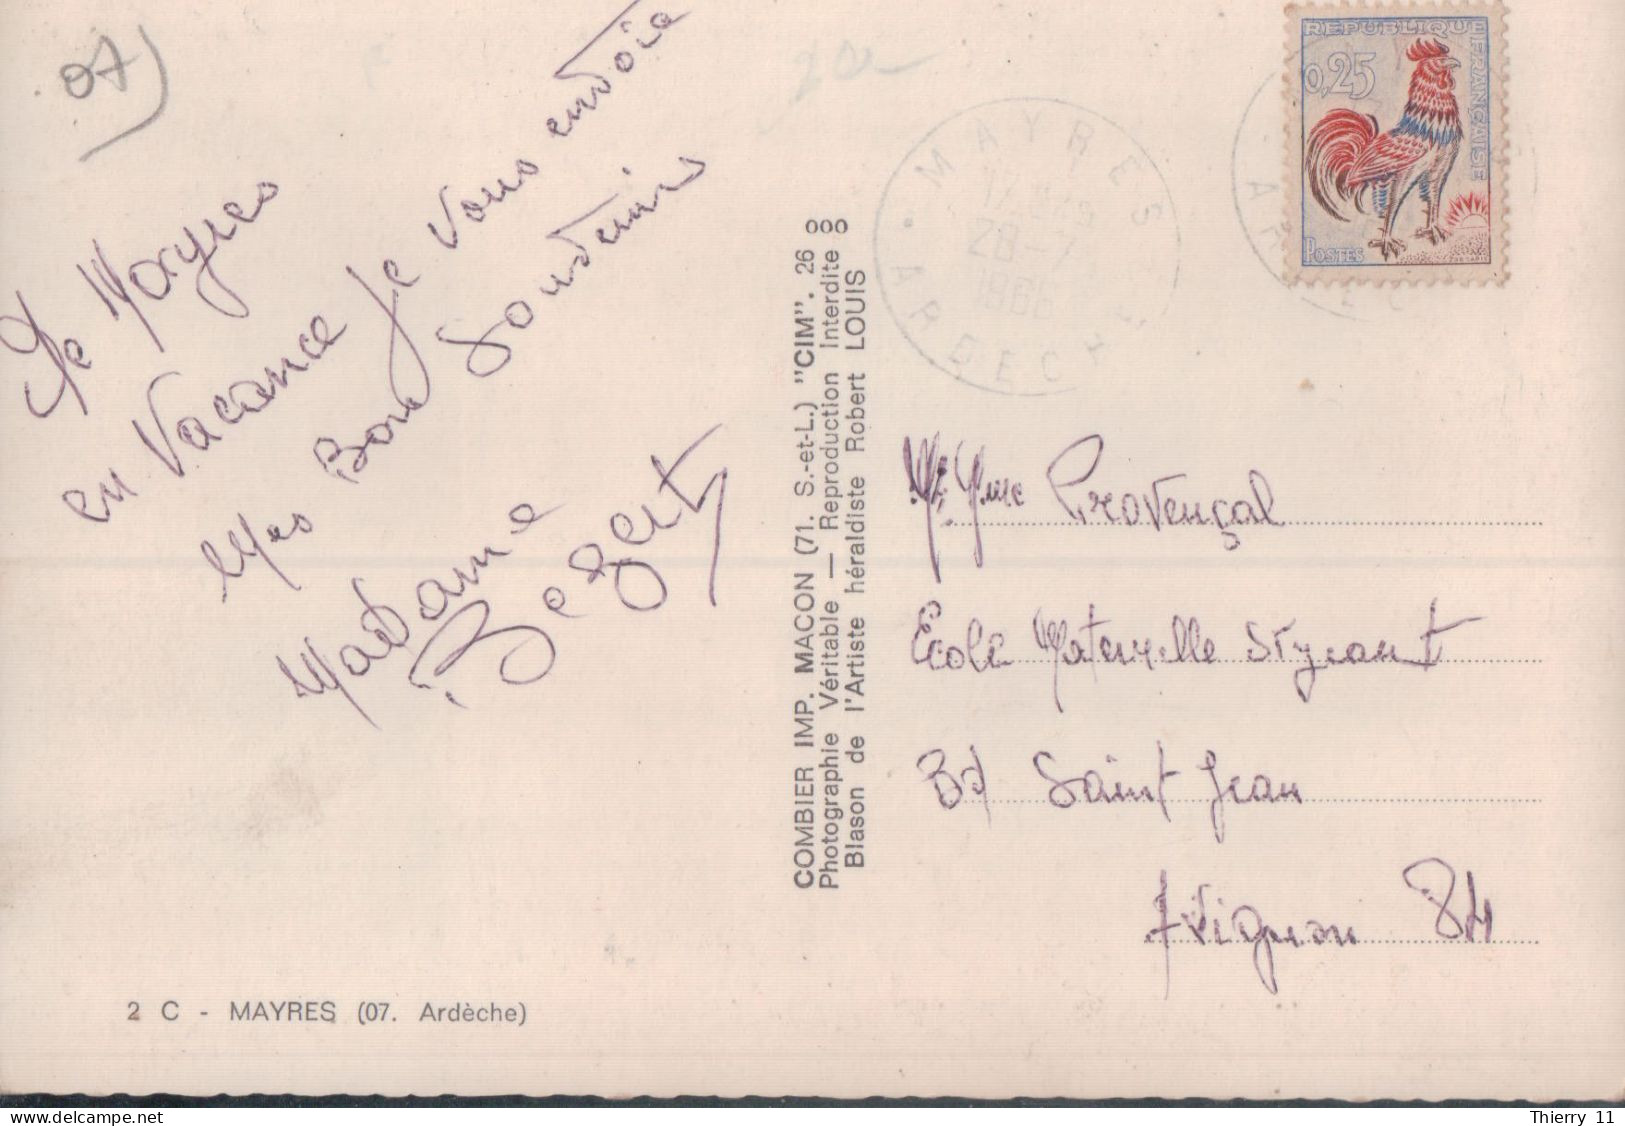 07)
De Mayres
en Vacance je vous envoie
Mes Bons Souvenirs
Madame
Bezert
2 C - MAYRES (07. Ardèche)
COMBIER IMP. MACON (71. S.-et-L.) "CIM". 26 000
Photographie Véritable — Reproduction Interdite
Blason de l'Artiste héraldiste Robert LOUIS
MAYRES
28-7
1966
ARDECHE
REPUBLIQUE FRANÇAISE
0,25
POSTES
M. Mme Provençal
Ecole Maternelle
Bd Saint Jean
Avignon 84
delcampe.net
Thierry 11